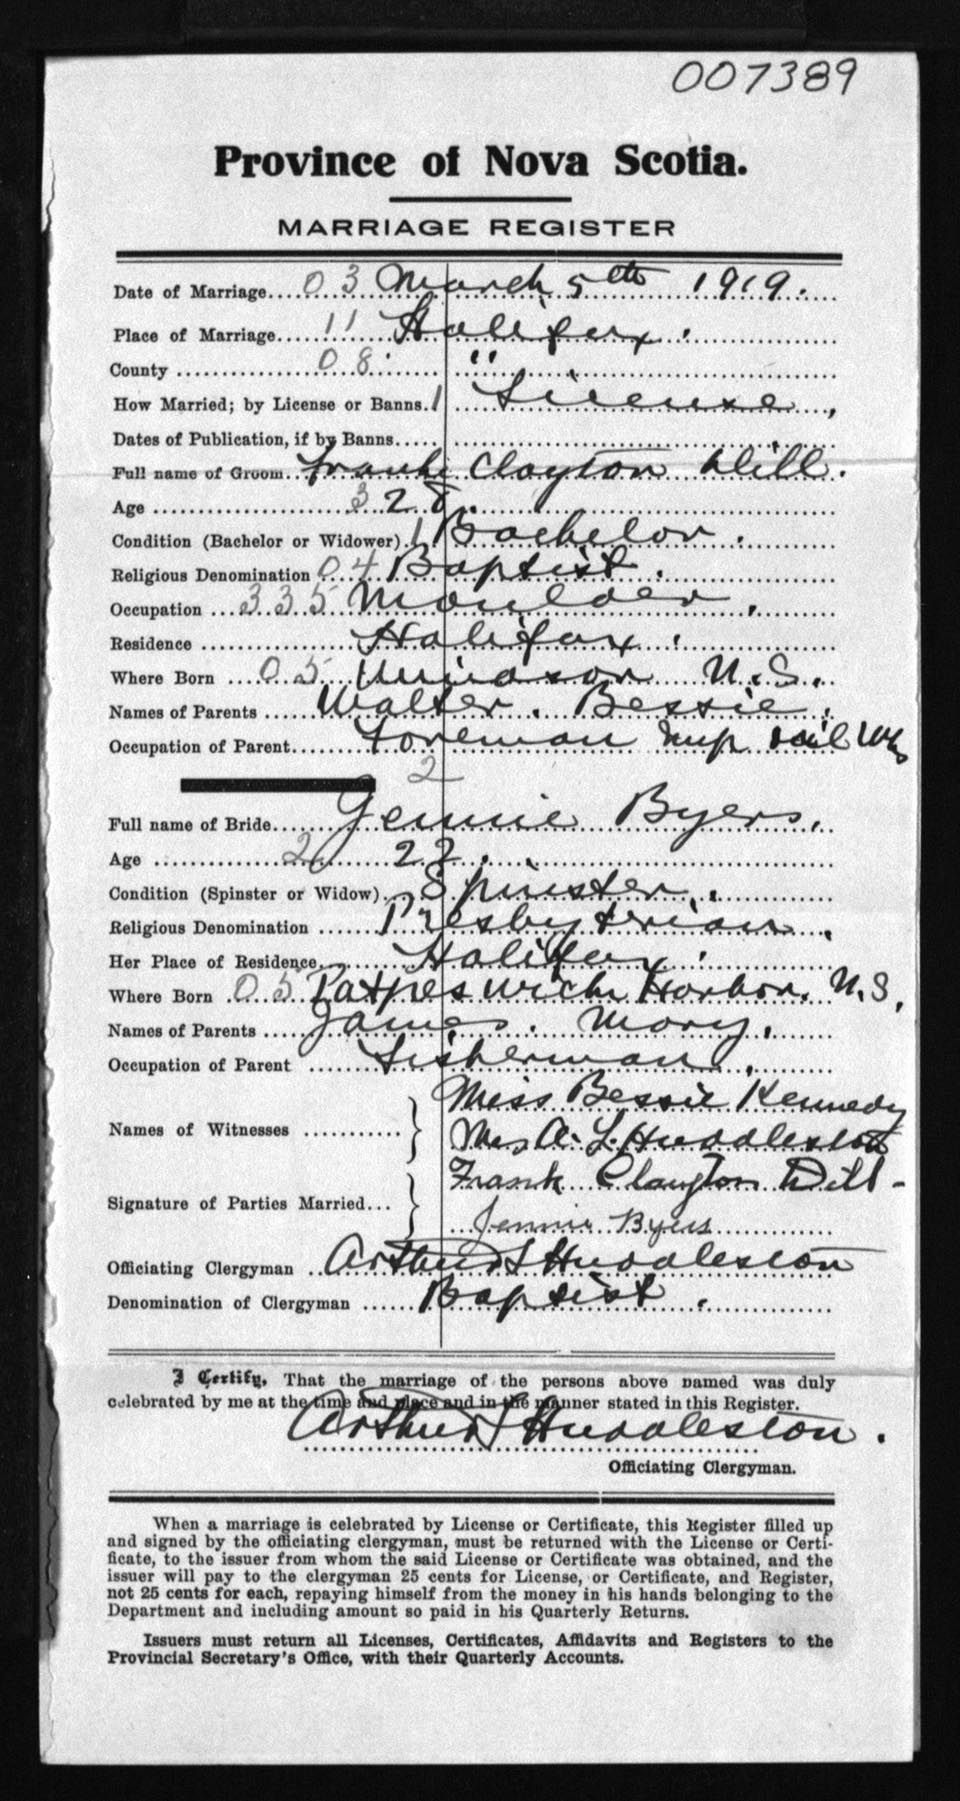 007389
Province of Nova Scotia.
MARRIAGE REGISTER
Date of Marriage.... 03 March 5th 1919.
Place of Marriage..... 11 Halifax.
County ............... 08 "
How Married; by License or Banns. 1 License,
Dates of Publication, if by Banns.....
Full name of Groom.. Frank Clayton Dill.
Age ................. 3 28.
Condition (Bachelor or Widower). 1 Bachelor.
Religious Denomination 04 Baptist.
Occupation ... 335 Moulder,
Residence ............ Halifax.
Where Born .... 05 Windsor N.S.
Names of Parents ...... Walter. Bessie.
Occupation of Parent...... Foreman
2
Full name of Bride...... Jennie Byers,
Age ............ 2 22.
Condition (Spinster or Widow).. Spinster.
Religious Denomination ...... Presbyterian,
Her Place of Residence....... Halifax.
Where Born . 05 Harbor, N.S,
Names of Parents .... James. Mary.
Occupation of Parent ...... Fisherman,
Miss Bessie Kennedy
Names of Witnesses ............ } Mrs A. L. Huddleston
Frank Clayton Dill -
Signature of Parties Married... } Jennie Byers
Officiating Clergyman .. Arthur L Huddleston
Denomination of Clergyman ...... Baptist.
I Certify, That the marriage of the persons above named was duly
celebrated by me at the time and place and in the manner stated in this Register.
Arthur L Huddleston.
Officiating Clergyman.
When a marriage is celebrated by License or Certificate, this Register filled up
and signed by the officiating clergyman, must be returned with the License or Certi-
ficate, to the issuer from whom the said License or Certificate was obtained, and the
issuer will pay to the clergyman 25 cents for License, or Certificate, and Register,
not 25 cents for each, repaying himself from the money in his hands belonging to the
Department and including amount so paid in his Quarterly Returns.
Issuers must return all Licenses, Certificates, Affidavits and Registers to the
Provincial Secretary's Office, with their Quarterly Accounts.